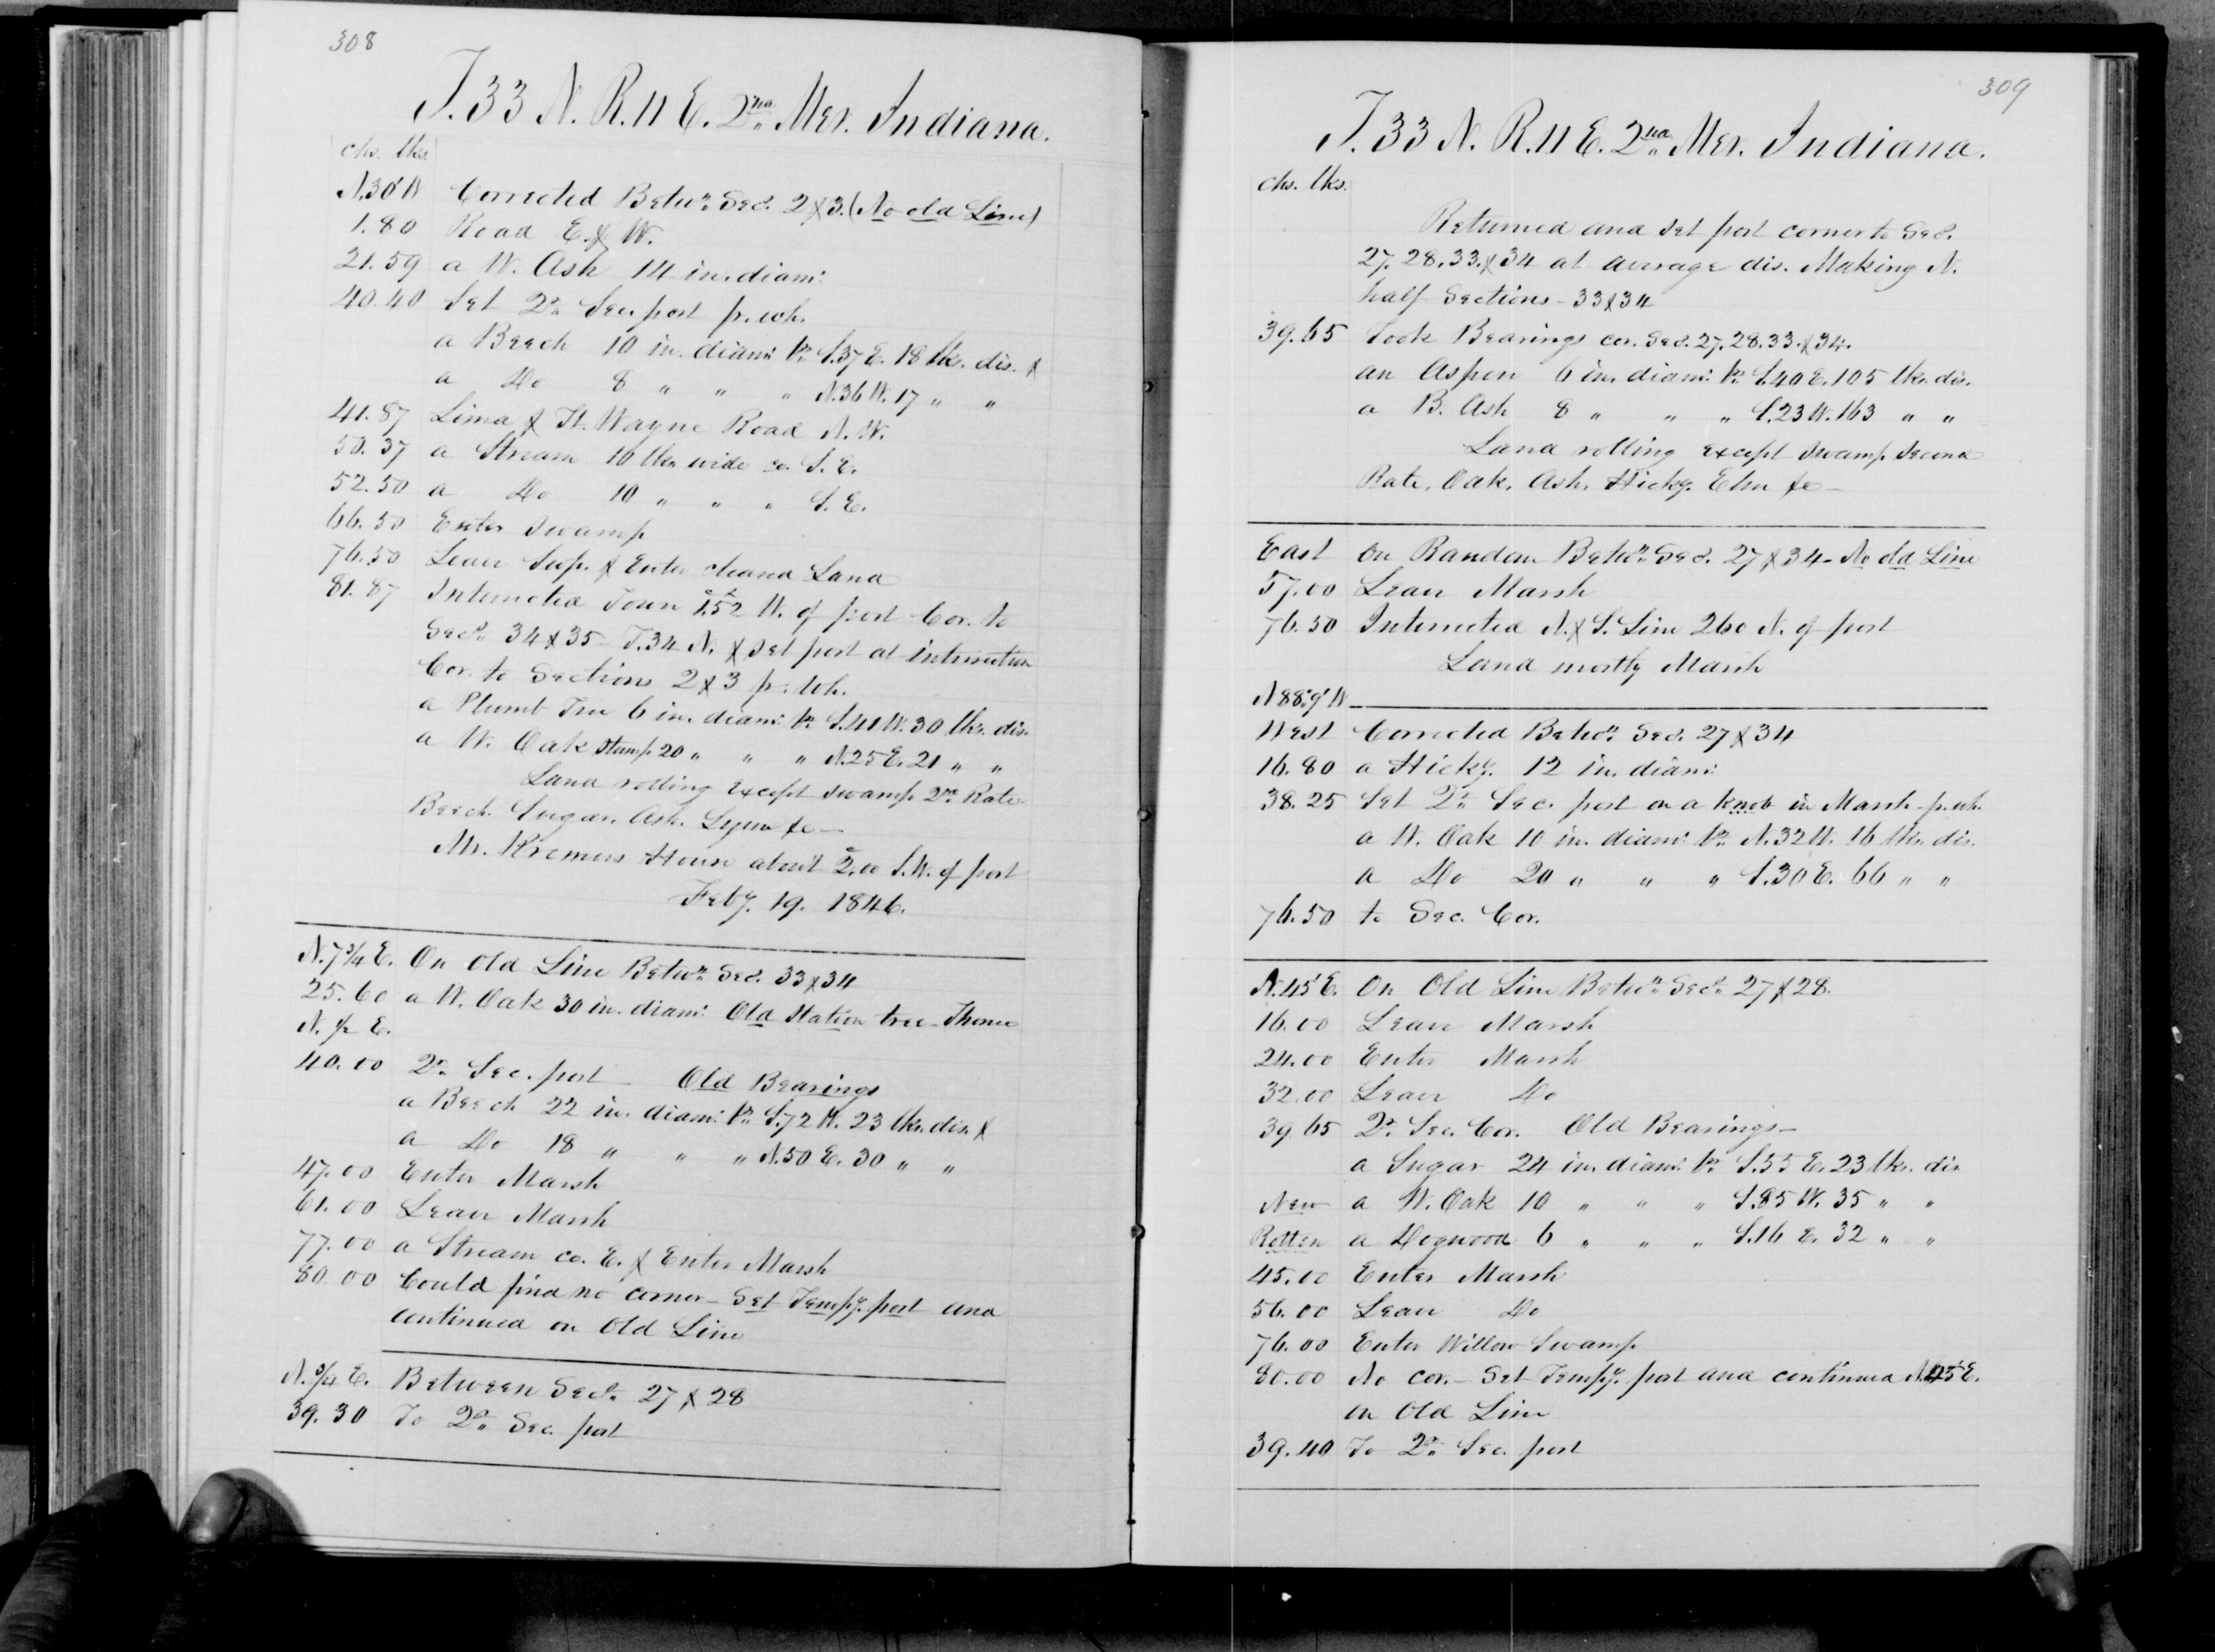 308
T. 33 N. R. 11 E. 2nd Mer. Indiana.
chs. lks.
N. 30' W Corrected Betwn. Secs. 2 & 3. (No old Line)
1.80 Road E. & W.
21.59 a W. Ash 14 in. diam:
40.40 Set Qr. Sec. post fr. wh.
a Beech 10 in. diam: Br. S. 37 E. 18 lks. dis. &
a Do 8 " " " N. 36 W. 17 " "
41.87 Lima & Ft. Wayne Road N. W.
50.37 a Stream 10 lks wide co. S. E.
52.50 a Do 10 " " " S. E.
66.50 Enter Swamp
76.50 Leave Swp. & Enter cleared Land
81.87 Intersected Town 1.52 W. of post Cor. to
Secs. 34 & 35 - T. 34 N. & set post at intersection
Cor. to Sections 2 & 3 fr. wh.
a Plumb Tree 6 in. diam: Br. S. 41 W. 30 lks. dis.
a W. Oak Stump 20 " " " N. 25 E. 21 " "
Land rolling except swamp 2nd Rate
Beech. Sugar. Ash. Lynn &c —
Mr. Kremers House about 2.00 S. W. of post
Feby. 19. 1846.
N. 7 3/4 E. On Old Line Betwn. Secs. 33 & 34
25.60 a W. Oak 30 in. diam: Old Station tree - Thence
N. 1/2 E.
40.00 Qr. Sec. post — Old Bearings
a Beech 22 in. diam: Br. S. 72 W. 23 lks. dis. &
a Do 18 " " " N. 50 E. 30 " "
47.00 Enter Marsh
61.00 Leave Marsh
77.00 a Stream co. E. & Enter Marsh
80.00 Could find no corner - Set Tempy. post and
continued on Old Line
N. 3/4 E. Between Secs. 27 & 28
39.30 To Qr. Sec. post
309
T. 33 N. R. 11 E. 2nd Mer. Indiana.
chs. lks.
Returned and set post corner to Secs.
27. 28. 33. & 34 at average dis. Making N.
half Sections - 33 & 34
39.65 Took Bearings cor. Secs. 27. 28. 33. & 34.
an Aspen 6 in. diam: Br. S. 40 E. 105 lks. dis.
a B. Ash 8 " " " S. 23 W. 163 " "
Land rolling except swamp Second
Rate. Oak. Ash. Hicky. Elm &c —
East On Random Betwn. Secs. 27 & 34 - No old Line
57.00 Leave Marsh
76.50 Intersected N. & S. Line 260 N. of post
Land mostly Marsh
N 88° 9' W
West Corrected Betwn. Secs. 27 & 34
16.80 a Hicky. 12 in. diam:
38.25 Set Qr. Sec. post on a knob in Marsh - fr. wh.
a W. Oak 10 in. diam: Br. N. 32 W. 16 lks. dis.
a Do 20 " " " S. 30 E. 66 " "
76.50 to Sec. Cor.
N. 45' E. On Old Line Betwn. Secs. 27 & 28.
16.00 Leave Marsh
24.00 Enter Marsh
32.00 Leave Do
39.65 Qr. Sec. Cor. Old Bearings —
a Sugar 24 in. diam: Br. S. 55 E. 23 lks. dis
New a W. Oak 10 " " " S. 85 W. 35 " "
Rotten a Dogwood 6 " " " S. 16 E. 32 " "
45.00 Enter Marsh
56.00 Leave Do
76.00 Enter Willow Swamp
80.00 No cor. - Set Tempy. post and continued N. 45' E.
on Old Line
39.40 To Qr. Sec. post